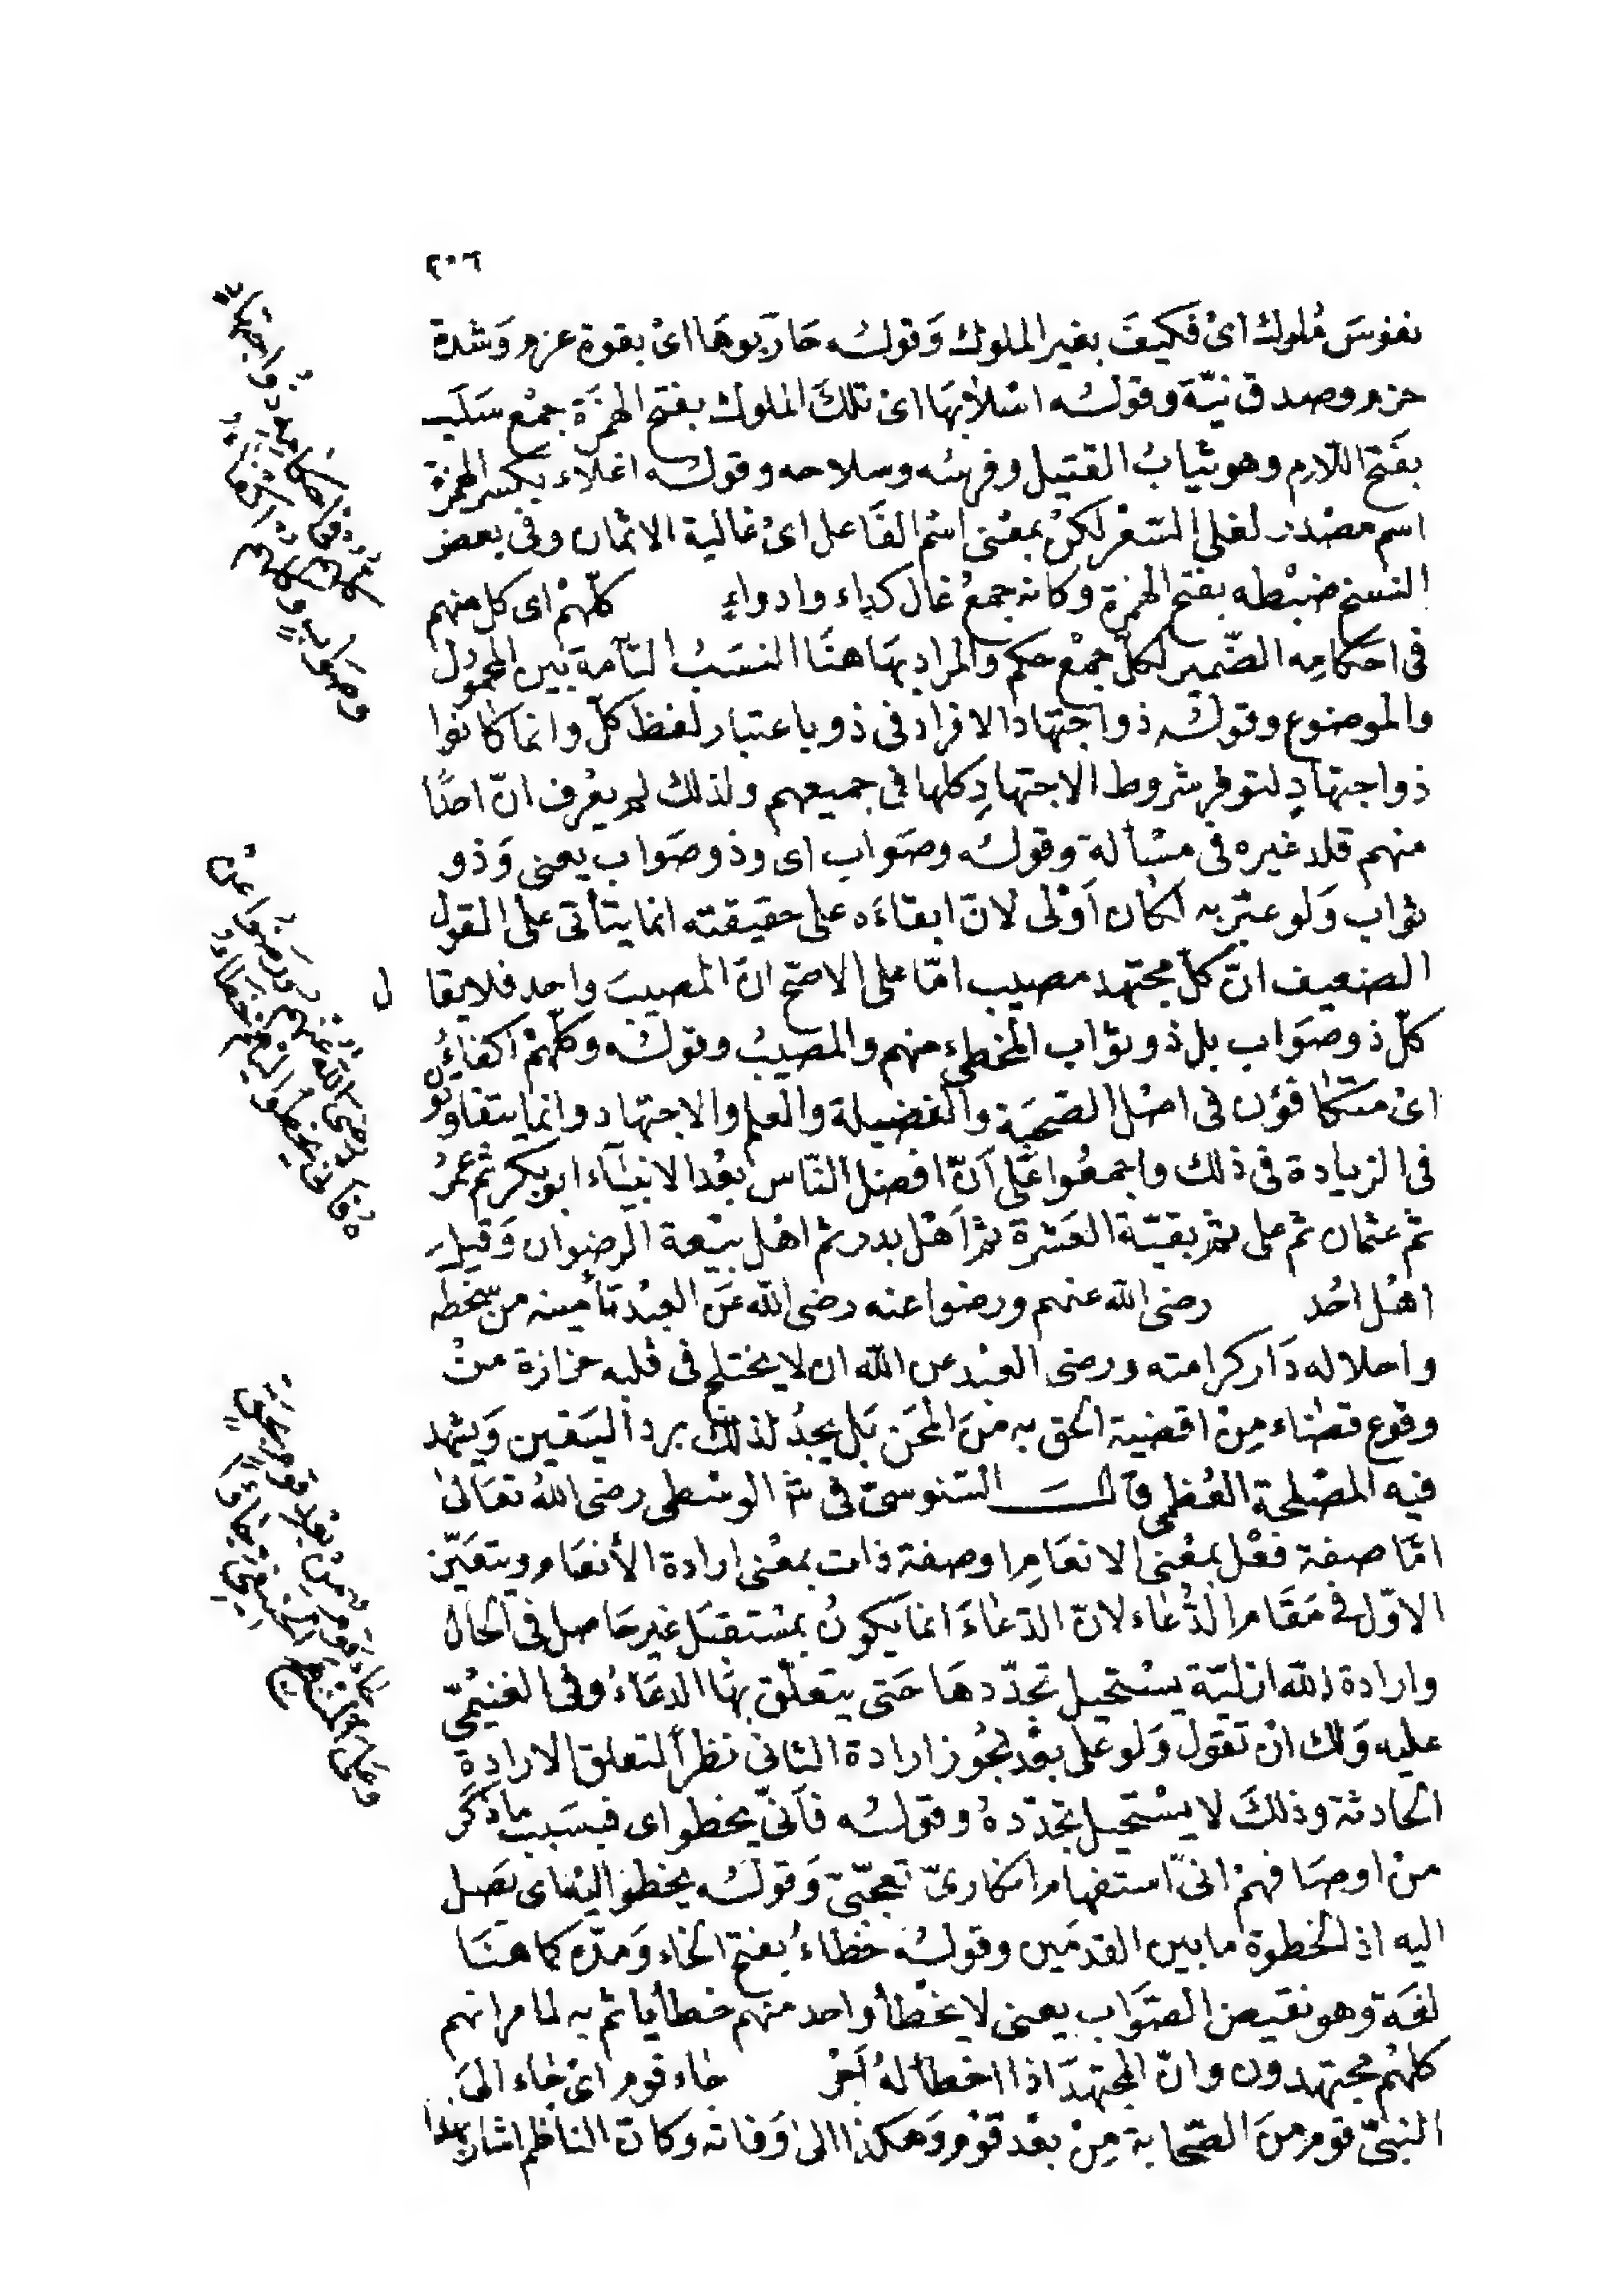 ٢٠٦
نفوسَ مُلوك اىْ فكيفَ بغير الملوك وَقولـُه حَارَبوهَا اىْ بقوة عزم وَشدة
حزم وصدق نيّة وقولـُه اسْلابهَا اى تلكَ الملوك بفتح الهمزَة جمْع سَلَب
بفَتح اللّام وهو ثيابُ القتيل وفرسُه وسلاحه وقولـه اغلاء بكسر الهمزة
اسم مصْدر لغلى السّعْر لكنْ بمعْنى اسْم الفَاعل اىْ غالية الاثمان وفى بعض
النسخ ضبْطه بفتح الهمزة وكانه جمعُ غال كداء وادواءٍ كلّهمْ اى كل منهم
فى احكامِه الضّمير لكلّ جمْع حكم والمراد بهَا هنَا النسَبُ التآمة بَين المحمُول
والموضوع وقولـُه ذو اجتهاد الافراد فى ذو باعتبار لفظ كلّ وانما كانوا
ذوا جتهادٍ لتوفر شروط الاجتهادِ كلها فى جميعهم ولذلك لم يعْرف انّ احدًا
منهم قلد غيره فى مسْألة وقولـُه وصَواب اى وذو صَواب يعنى وَذو
ثواب وَلو عبّر به لكان اَوْلى لانّ ابقاءَه على حقيقته انما يتأتى على القول
الضعيف انّ كلّ مجتهد مصيب امّا على الاصَحّ انّ المصيبَ واحد فلايقال
كلّ ذو صوَاب بل ذو ثوَاب المخطىء منهم والمصيبُ وقولـُه وكلّهمْ اكفاءُ
اىْ متكافؤن فى اصْل الصّحبَة والفضيلة والعلم والاجتهاد وانما يتفاوتون
فى الزيادة فى ذلك واجمعُوا عَلى اَنّ افضل النّاس بعْد الانبيَآء ابو بكر ثم عُمرُ
ثم عثمان ثم على ثمّ بقيّة العَشرة ثم اَهْل بدر ثم اهْل بيْعة الرضوان وَقيل
اهْل احُد رضى الله عنهم ورضوا عنه رضى الله عَن العبْد تأمينه من سخطه
واحلاله دَار كرامته ورضى العبْد عن الله ان لا يختلج فى قلبه حزازة منْ
وقوع قضاء مِنْ اقضية الحق به منَ المحَن بَل يجدُ لذلك برد اليَقين وَيشهد
فيه المصْلحة العُظمى قالـَ السّنوسىّ فى شر الوسْطى رضى اللهُ تعَالى
امّا صفة فعْل بمعْنى الانعَامِ او صفة ذات بمعْنى ارادة الأنعَام ويتعَيّن
الاوّل فى مَقَام الدّعَاء لانّ الدّعَاءَ انما يكونُ بمسْتقبَل غير حَاصل فى الحال
وارادة الله ازليّة يسْتحيل تجدّدهَا حَتى يتعلّق بهَا الدعَاءُ وفى الغنيْمىّ
عليه وَلك انْ تقول وَلو على بعْد تجُوز ارادة الثانى نظراً لتعلق الارادة
الحادثة وذلكَ لا يسْتحيل تجدّدهُ وقولـُه فاَنىّ يخطو اى فبسَبب ماذكر
منْ اوصَافهمْ انىّ استفهام انكارىّ تعجّبىّ وَقولـُه يخطو اليْه اى يَصل
اليه اذ الخطوة ما بين القدمَين وقولـُه خطاءُ بفتح الخاء وَمدّه كما هنَا
لغَة وهو نقيض الصّوَاب يعنى لا يخطأ واحد منهم خطأ يأثم به لما مر انهم
كلهُم مجتهدون وانّ المجتهدَ اذا اخطأ لهُ اَجْر جَاء قوم اىْ جَاء الىَ
النبىّ قوم منَ الصّحابة مِنْ بعْد قوْم وَهكذا الى وَفاته وَكانّ الناظم اشار بهذا
كلهم فى احكامه ذو اجتهاد
وصوابٍ وكلهم اكفاء
رضى الله عنهم ورضوا عنْ
هُ فأنى يخطو اليهم خطاء
جاء قوم من بعد قوم بحق
وعلى المنهج الحنيفى جاؤا